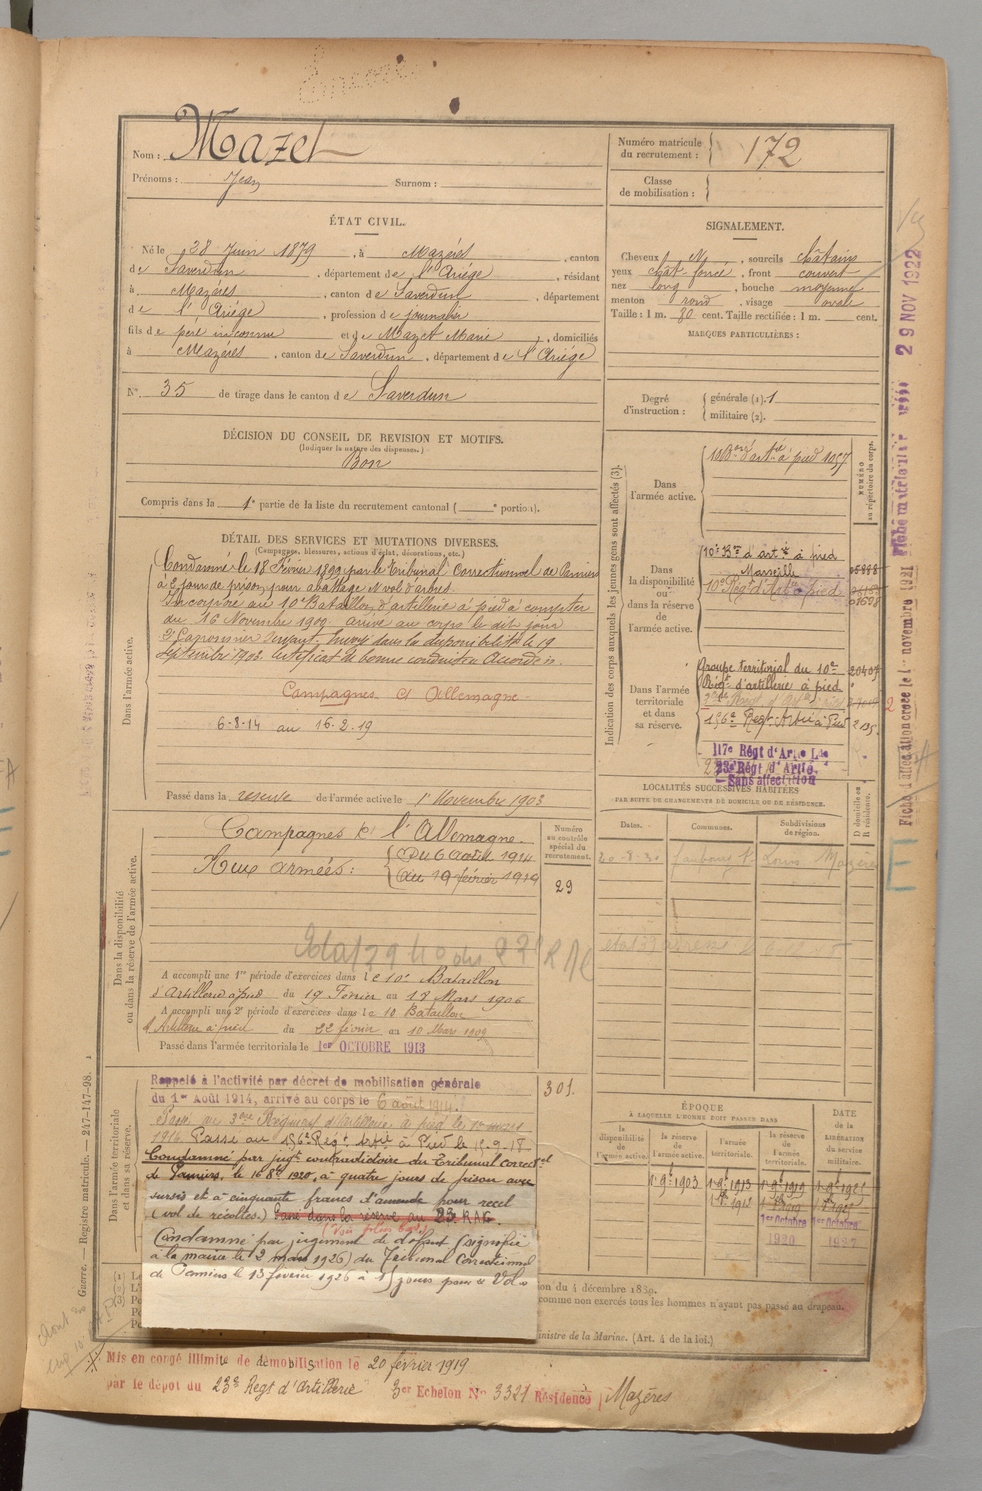 Nom : Mazet
Prénoms : Jean Surnom :
Numéro matricule du recrutement : 172
Classe de mobilisation :
ÉTAT CIVIL.
Né le 28 Juin 1879, à Mazères, canton
de Saverdun, département de l'Ariège, résidant
à Mazères, canton de Saverdun, département
de l'Ariège, profession de journalier
fils de père inconnu et de Mazet Marie, domiciliés
à Mazères, canton de Saverdun, département de l'Ariège
N° 35 de tirage dans le canton de Saverdun
SIGNALEMENT.
Cheveux N, sourcils châtains
yeux chât foncé, front couvert
nez long, bouche moyenne
menton rond, visage ovale
Taille : 1 m. 80 cent. Taille rectifiée : 1 m. cent.
MARQUES PARTICULIÈRES :
DÉCISION DU CONSEIL DE REVISION ET MOTIFS.
(Indiquer la nature des dispenses.)
Bon
Compris dans la 1e partie de la liste du recrutement cantonal ( e portion).
Degré d'instruction : générale (1). 1
militaire (2).
DÉTAIL DES SERVICES ET MUTATIONS DIVERSES.
(Campagnes, blessures, actions d'éclat, décorations, etc.)
Dans l'armée active.
Condamné le 18 Février 1899 par le Tribunal Correctionnel de Pamiers
à 2 jours de prison pour abattage et vol d'arbres.
Incorporé au 10e Bataillon d'artillerie à pied à compter
du 16 Novembre 1900 arrivé au corps le dit jour
2e Canonnier servant. Envoyé dans la disponibilité le 19
Septembre 1903. Certificat de bonne conduite Accordé.
Campagnes cl Allemagne
6-8-14 au 16-2-19
Passé dans la réserve de l'armée active le 1 Novembre 1903
Indication des corps auxquels les jeunes gens sont affectés (3).
NUMÉRO au répertoire du corps.
Dans l'armée active.
10 Bon d'artie à pied 1057
Dans la disponibilité ou dans la réserve de l'armée active.
10e Bon d'artie à pied
Marseille
10e Régt d'Artie à pied
Dans l'armée territoriale et dans sa réserve.
Groupe territorial du 10e
Régt d'artillerie à pied
156e Régt Artie à Pied
117e Régt d'Artie Lde
23e Régt d'Artie
Sans affectation
Dans la disponibilité ou dans la réserve de l'armée active.
Campagnes cl l'Allemagne.
Aux armées : Du 6 août 1914
au 19 février 1919
Numéro au contrôle spécial du recrutement.
29
A accompli une 1re période d'exercices dans le 10e Bataillon
d'Artillerie à pied du 19 Février au 18 Mars 1906
A accompli une 2e période d'exercices dans le 10 Bataillon
d'Artillerie à pied du 22 février au 10 Mars 1909
Passé dans l'armée territoriale le 1er OCTOBRE 1913
LOCALITÉS SUCCESSIVES HABITÉES
PAR SUITE DE CHANGEMENTS DE DOMICILE OU DE RÉSIDENCE.
Dates. Communes. Subdivisions de région. D domicile ou R résidence.
20-8-30 faubourg St Louis Mazères
Dans l'armée territoriale et dans sa réserve.
Rappelé à l'activité par décret de mobilisation générale
du 1er Août 1914, arrivé au corps le 6 août 1914.
301
Passé au 3ème Régiment d'Artillerie à pied le 1er mars
1916 Passé au 156e Régt Artie à Pied le 15-9-18
Condamné par jugt contradictoire du Tribunal correctel
de Pamiers, le 16 8e 1920, à quatre jours de prison avec
sursis et à cinquante francs d'amende pour recel
(vol de récoltes.) Passé dans la réserve au 23 RAC
Condamné par jugement de défaut (signifié
à la mairie le 2 mars 1926) du Tribunal Correctionnel
de Pamiers le 13 février 1926 à 15 jours pour Vol
ÉPOQUE
À LAQUELLE L'HOMME DOIT PASSER DANS
la disponibilité de l'armée active. la réserve de l'armée active. l'armée territoriale. la réserve de l'armée territoriale. DATE de la LIBÉRATION du service militaire.
1er 9e 1903 1er 9e 1913 1er 9e 1919 1er 9e 1925
1er Octobre 1er Octobre
1920 1927
du 4 décembre 1889.
comme non exercés tous les hommes n'ayant pas passé au drapeau.
ministre de la Marine. (Art. 4 de la loi.)
Mis en congé illimité de démobilisation le 20 février 1919
par le dépôt du 23e Regt d'Artillerie 3er Echelon N° 3321 Résidence Mazères
Guerre. — Registre matricule. — 247-147-98.
29 NOV 1922
Fiche d'affectation créée le 1er novembre 1921